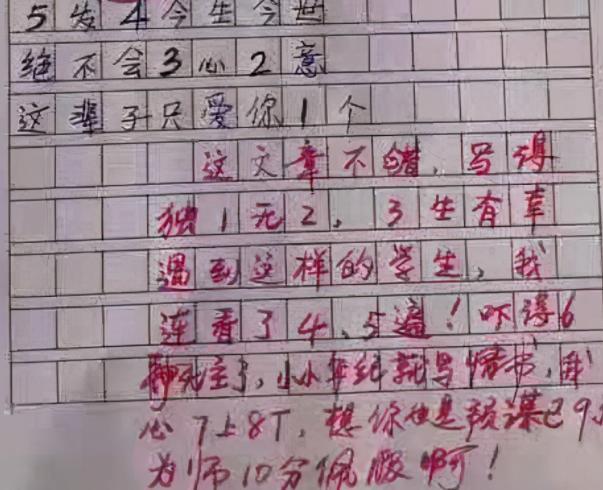 5发4今生今世
绝不会3心2意
这辈子只爱你1个
这文章不错,写得
独1无2,3生有幸
遇到这样的学生,我
连看了4、5遍!吓得6
神无主了,小小年纪就写情书,我
心7上8下,想你也是预谋已9
为师10分佩服啊!